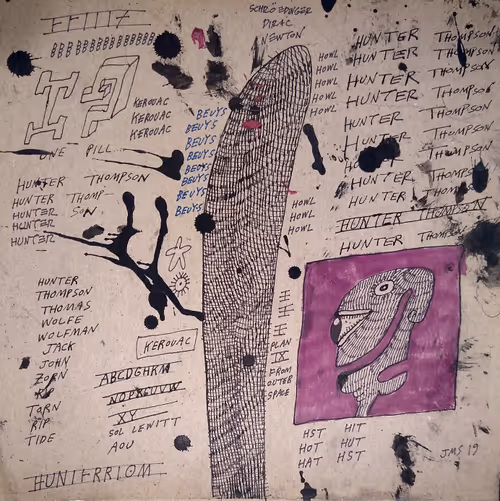 SCHRÖEDINGER
DIRAC
NEWTON
BBBBBBBBBBBBBB
KEROUAC
KEROUAC
KEROUAC
ONE PILL
HUNTER THOMPSON
HUNTER THOMP-
HUNTER SON
HUNTER
HUNTER
BEUYS
BEUYS
BEUYS
BEUYS
BEUYS
BEUYS
BEUYS
BEUYS
HOWL
HOWL
HOWL
HOWL
HOWL
HOWL
HOWL
HOWL
HUNTER THOMPSON
HUNTER THOMPSON
HUNTER THOMPSON
HUNTER THOMPSON
HUNTER THOMPSON
HUNTER
HUNTER THOMPSON
HUNTER THOMPSON
HUNTER
HUNTER THOMPSON
HUNTER
HUNTER
THOMPSON
THOMAS
WOLFE
WOLFMAN
JACK
JOHN
ZORN
RIP
TORN
RIP
TIDE
KEROUAC
ABCDGHKM
NOPRQUVW
XY
SOL LEWITT
AOU
PLAN
IX
FROM
OUTER
SPACE
HST HIT
HOT HUT
HAT HST
JMS 19